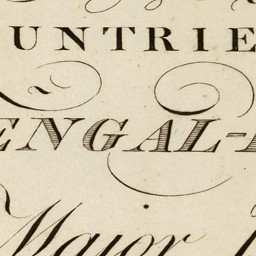 UNTRIE
ENGAL-
Major